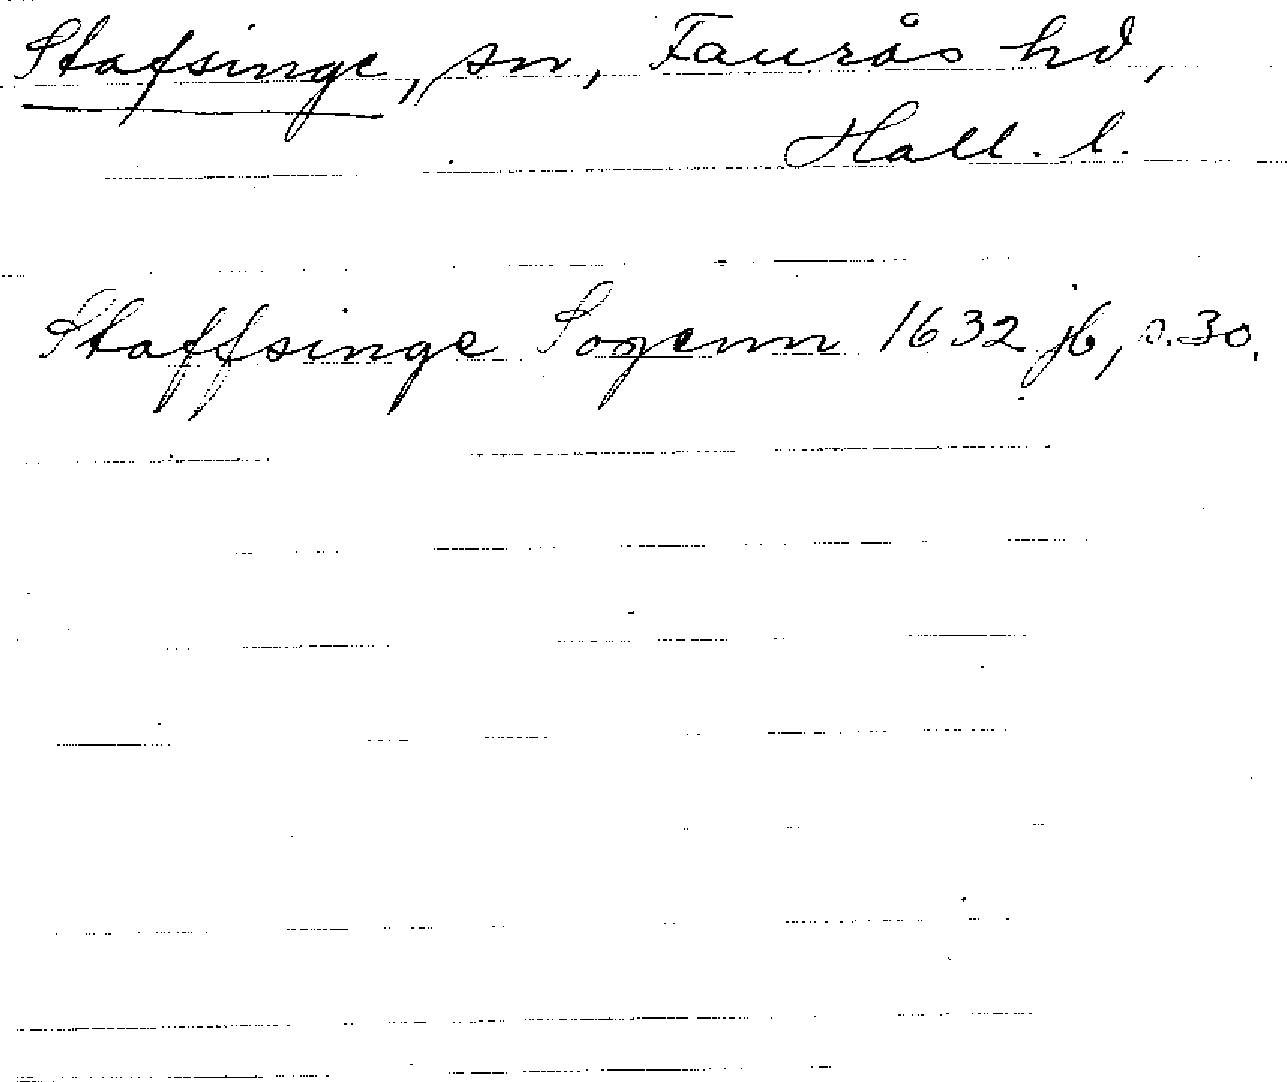 Stafsinge, sn, Faurås hd,
Hall. l.
Staffsinge Sogenn 1632 jb, s. 30.